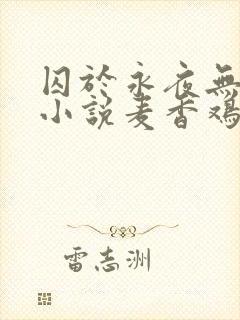 囚於永夜無
小说麦香鸡
雷志洲